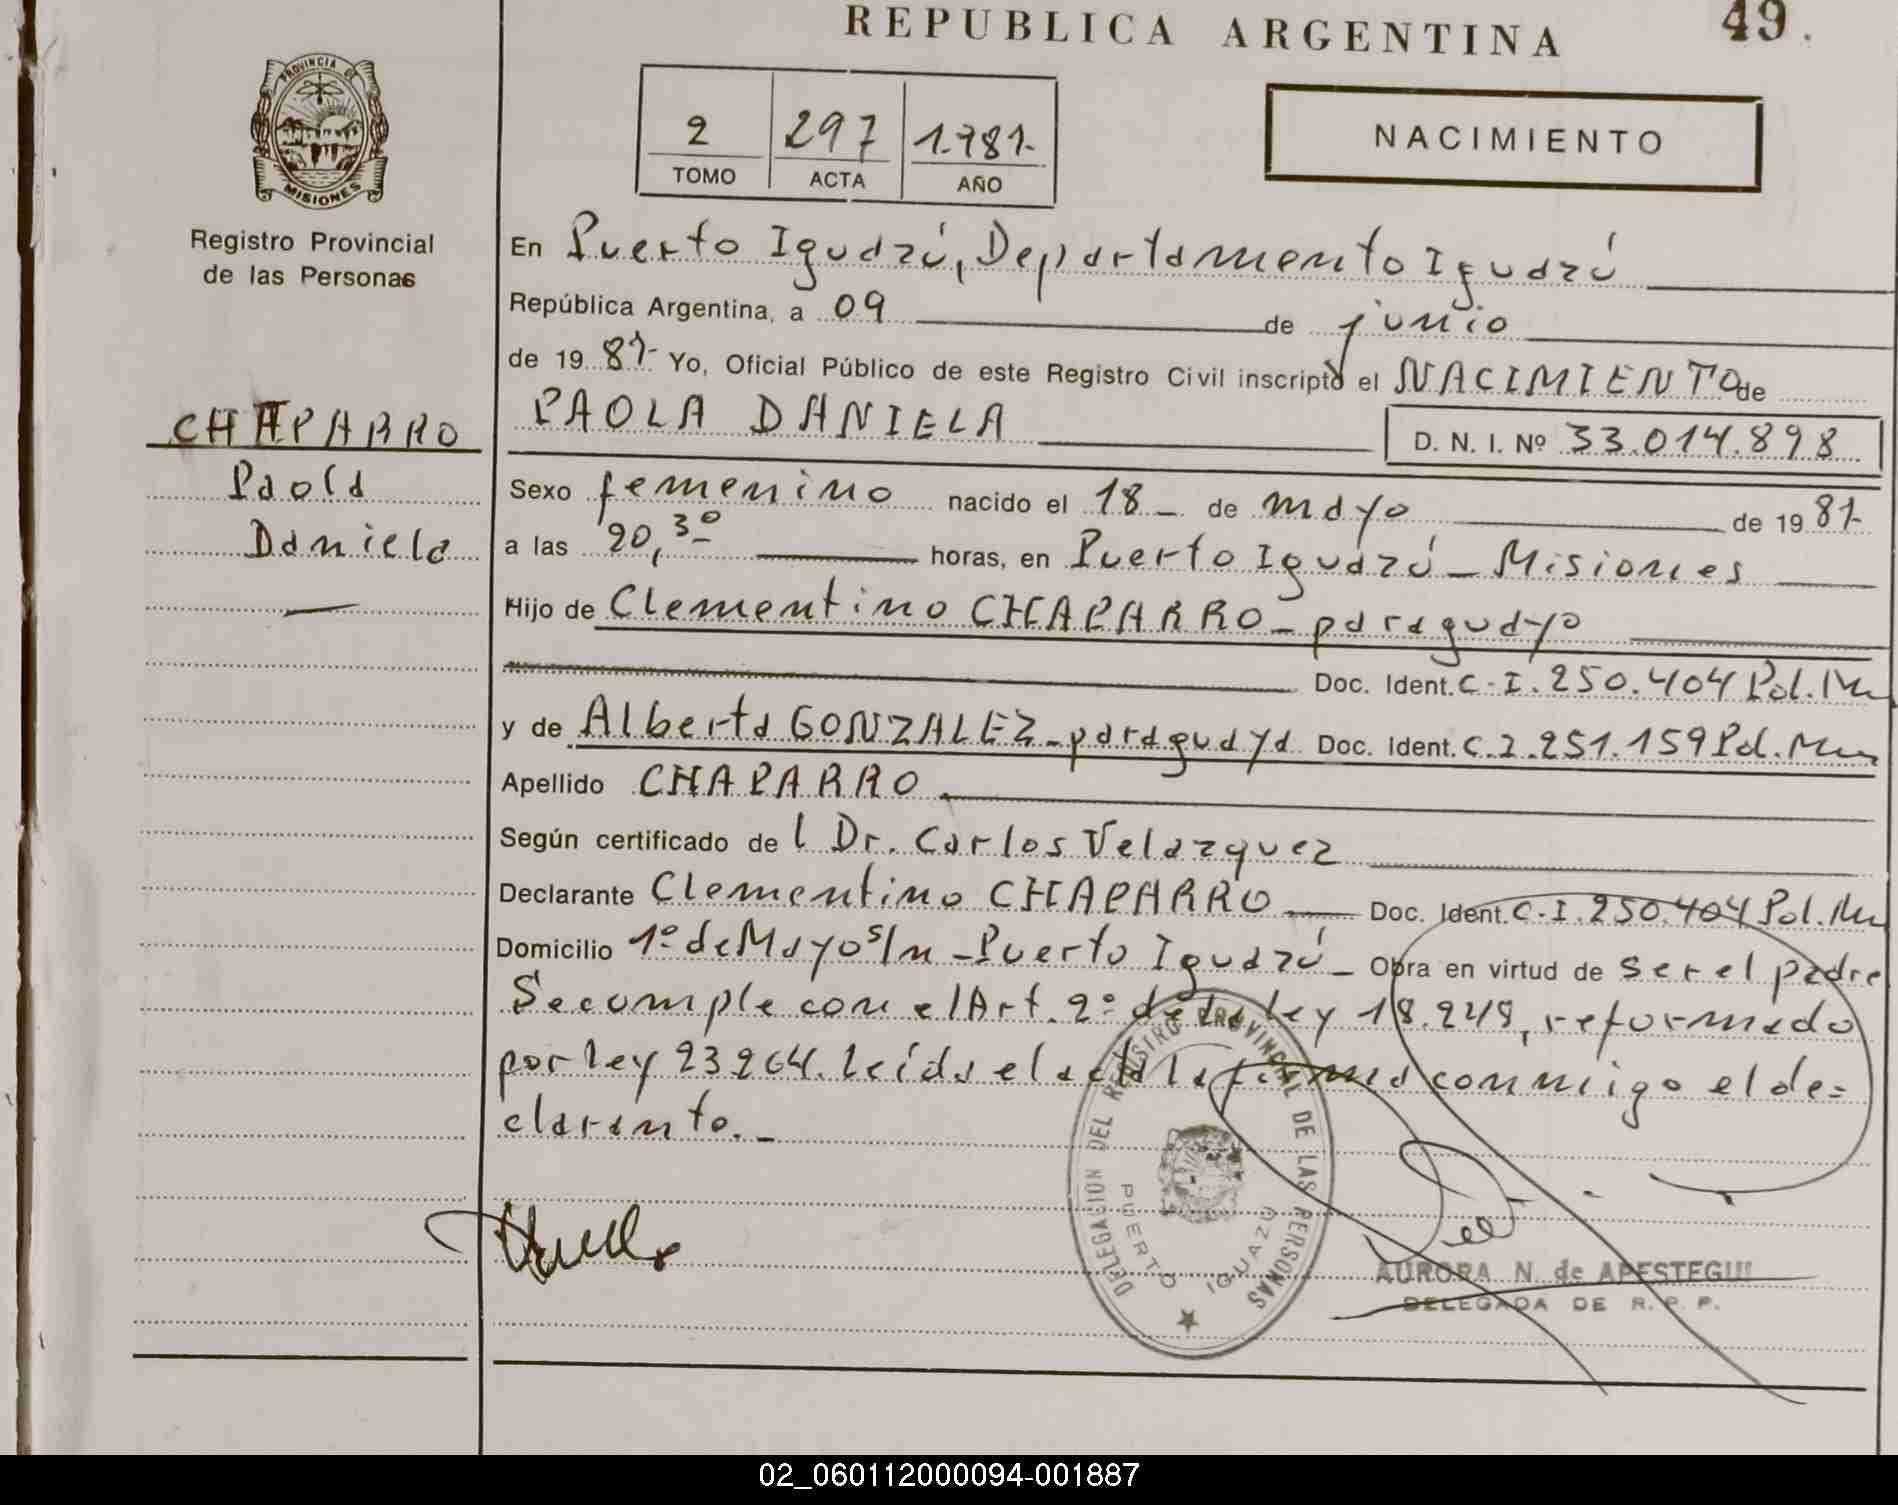 REPUBLICA ARGENTINA
49.
PROVINCIA DE
MISIONES
Registro Provincial
de las Personas
2 297 1.987.-
TOMO ACTA AÑO
NACIMIENTO
En Puerto Iguazú, Departamento Iguazú
República Argentina, a 09 de junio
de 19 87.- Yo, Oficial Público de este Registro Civil inscripto el NACIMIENTO de
CHAPARRO
Paola
Daniela
PAOLA DANIELA
D. N. I. Nº 33.014.898
Sexo femenino nacido el 18 - de mayo de 19 87-
a las 20,30 horas, en Puerto Iguazú - Misiones
Hijo de Clementino CHAPARRO - paraguayo
Doc. Ident. C.I. 250.404 Pol. Mnes
y de Alberta GONZALEZ - paraguaya Doc. Ident. C.I. 251.159 Pol. Mnes
Apellido CHAPARRO
Según certificado de l Dr. Carlos Velazquez
Declarante Clementino CHAPARRO Doc. Ident. C.I. 250.404 Pol. Mnes
Domicilio 1º de Mayo s/n - Puerto Iguazú - Obra en virtud de ser el padre
Se cumple con el Art. 2º de la ley 18.248, reformado
por ley 23264. Leída el acta la firma conmigo el de=
clarante. -
DELEGACION DEL REGISTRO PROVINCIAL DE LAS PERSONAS
PUERTO IGUAZU
AURORA N. de APESTEGUI
DELEGADA DE R. P. P.
02_060112000094-001887